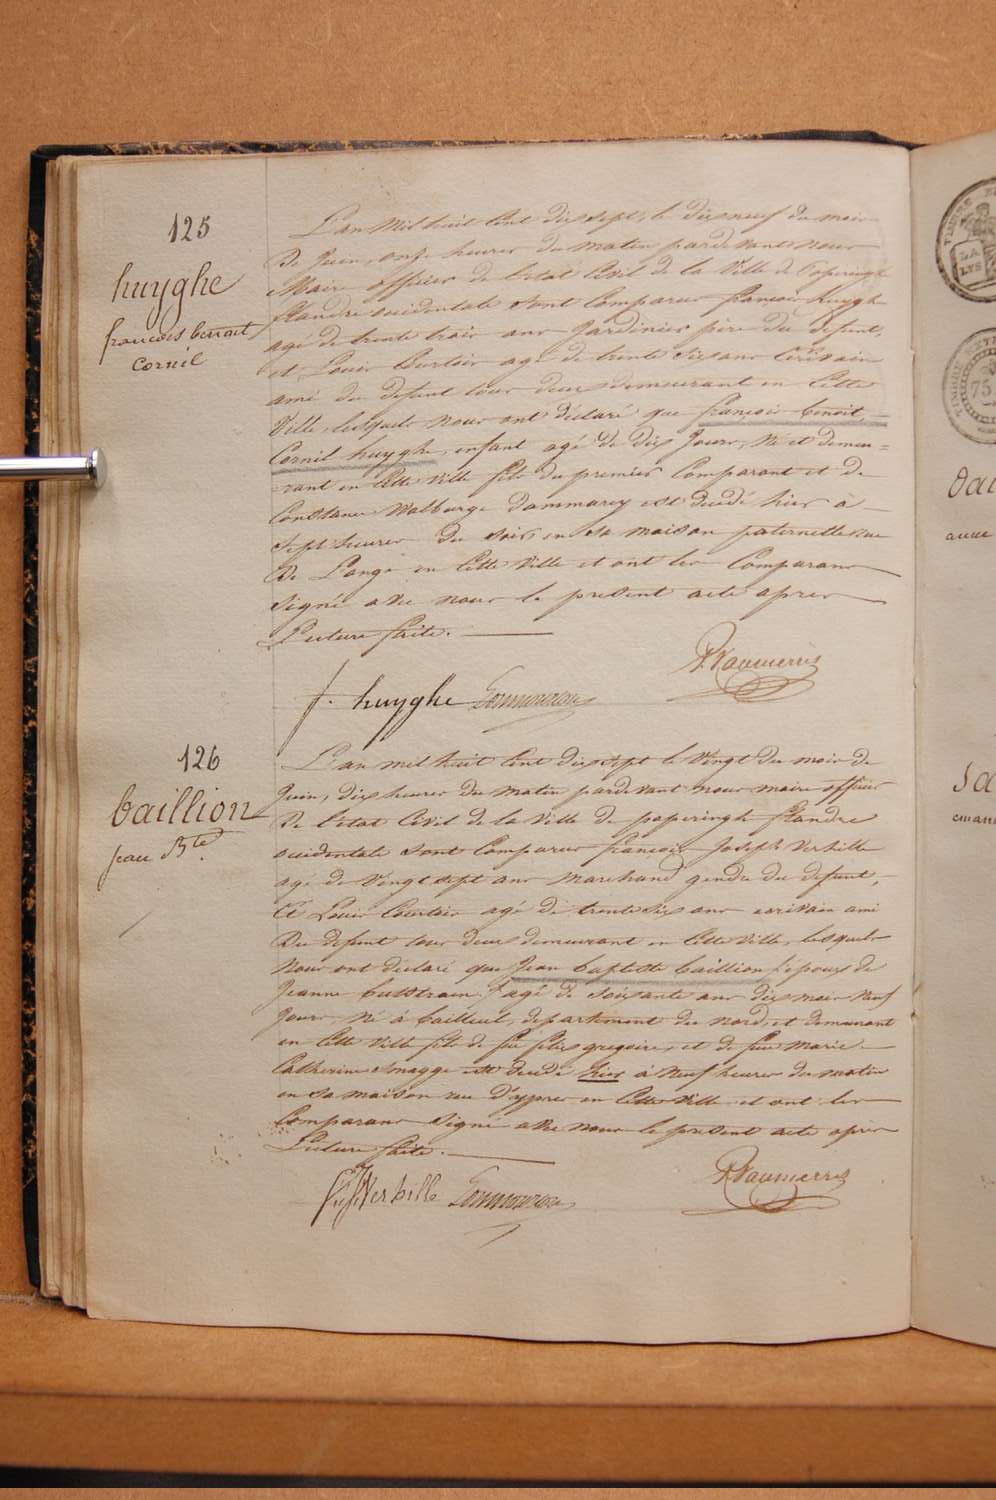 125
huyghe
francois benoit
Cornil
L'an Mil huit Cent dix sept, le dix neuf du mois
De Juin, onze heures du matin pardevant nous
Maire officier de l'etat Civil de la Ville de Poperinghe
flandre occidentale sont Comparus francois huyghe
agé de trente trois ans Jardinier père du defunt,
et Louis Courtois agé de trente six ans Ecrivain
ami du defunt tous deux demeurant en Cette
Ville, lesquels nous ont déclaré que francois benoit,
Cornil huyghe, enfant agé de dix Jours, né et demeu=
=rant en Cette Ville fils du premier Comparant et de
Constance Walburge Dammarey est decedé hier à
sept heures du soir en sa maison paternelle rue
De L'ange en Cette Ville et ont les Comparans
signé avec nous le present acte après
Lecture faite.
f. huyghe
126
baillion
jean Bte
L'an mil huit Cent dix sept le Vingt du mois de
Juin, dix heures du matin pardevant nous maire officier
De l'etat Civil de la Ville de poperinghe flandre
occidentale sont Comparus francois Joseph Verbille
agé de Vingt sept ans marchand gendre du defunt,
Et Louis Courtois agé de trente six ans ecrivain ami
Du defunt tous deux demeurant en Cette Ville, lesquels
nous ont déclaré que Jean baptiste baillion epoux de
Jeanne agé de soixante ans dix mois neuf
Jours, né à bailleul, departement du nord, et demeurant
en Cette Ville fils de feu felix gregoire, et de feue marie
Catherine est decedé hier à neuf heures du matin
en sa maison rue d'ypres en Cette Ville et ont les
Comparans signé avec nous le present acte après
Lecture faite.
Verbille
75